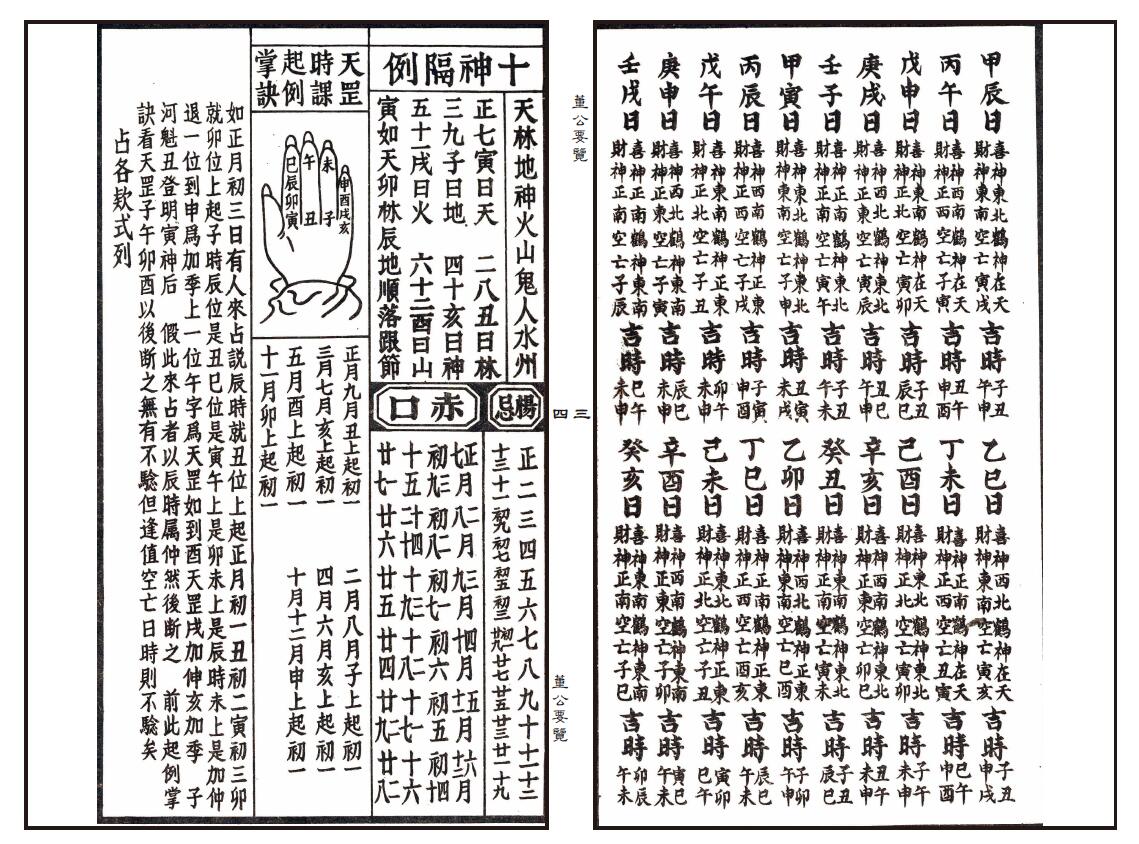 甲辰日
喜神東北鶴神在天
財神東南空亡寅戌
吉時
子丑
午申
丙午日
喜神西南鶴神在天
財神正西空亡子寅
吉時
丑午
申酉
戊申日
喜神東南鶴神在天
財神正北空亡寅卯
吉時
子丑
辰巳
庚戌日
喜神西北鶴神東北
財神正東空亡寅辰
吉時
丑巳
午申
壬子日
喜神正南鶴神東北
財神正南空亡寅午
吉時
子丑
午未
甲寅日
喜神東北鶴神東北
財神東南空亡子申
吉時
丑寅
未戌
丙辰日
喜神西南鶴神正東
財神正西空亡子戌
吉時
子寅
申酉
戊午日
喜神東南鶴神正東
財神正北空亡子丑
吉時
卯午
未申
庚申日
喜神西北鶴神東南
財神正東空亡子寅
吉時
辰巳
未申
壬戌日
喜神正南鶴神東南
財神正南空亡子辰
吉時
巳午
未申
乙巳日
喜神西北鶴神在天
財神東南空亡寅亥
吉時
子丑
申戌
丁未日
喜神正南鶴神在天
財神正西空亡子丑
吉時
巳午
申酉
己酉日
喜神東北鶴神東北
財神正北空亡寅辰
吉時
子午
未申
辛亥日
喜神西南鶴神東北
財神正東空亡卯巳
吉時
丑午
未申
癸丑日
喜神東南鶴神東北
財神正南空亡寅未
吉時
子丑
辰巳
乙卯日
喜神西北鶴神正東
財神東南空亡巳酉
吉時
子卯
午申
丁巳日
喜神正南鶴神正東
財神正西空亡丑亥
吉時
辰巳
午未
己未日
喜神東北鶴神正東
財神正北空亡子丑
吉時
寅卯
巳午
辛酉日
喜神西南鶴神東南
財神正東空亡子卯
吉時
寅巳
午申
癸亥日
喜神東南鶴神東南
財神正南空亡子巳
吉時
卯辰
午未
董公要覽
三四
董公要覽
十神隔例
天林地神火山鬼人水州
正七寅日天 二八丑日林
三九子日地 四十亥日神
五十一戌日火 六十二酉日山
寅如天卯林辰地順落跟節
楊忌
正二三四五六七八九十十一十二
十三 十一 初九 初七 初五 初三 初一 廿九 廿七 廿五 廿三 廿一 十九
赤口
正七月 初三 初九 十五 廿一 廿七
二八月 初二 初八 十四 二十 廿六
三九月 初一 初七 十三 十九 廿五
四十月 初六 十二 十八 廿四
五十一月 初五 十一 十七 廿二 廿九
六十二月 初四 初十 十六 廿二 廿八
天罡時課起例掌訣
未
子
午
丑
巳辰卯寅
申酉戌亥
正月九月丑上起初一
三月七月亥上起初一
五月酉上起初一
十一月卯上起初一
二月八月子上起初一
四月六月亥上起初一
十月十二月申上起初一
如正月初三日有人來占説辰時就丑位上起正月初一丑初二寅初三卯
就卯位上起子時辰位是丑巳位是寅午上是卯未上是辰時未上是加仲
退一位到申爲加季上一位午字爲天罡如到酉天罡戌加仲亥加季 子
河魁丑登明寅神后 假此來占者以辰時属仲然後断之 前此起例掌
訣看天罡子午卯酉以後断之無有不驗但逢值空亡日時則不驗矣
占各欵式列